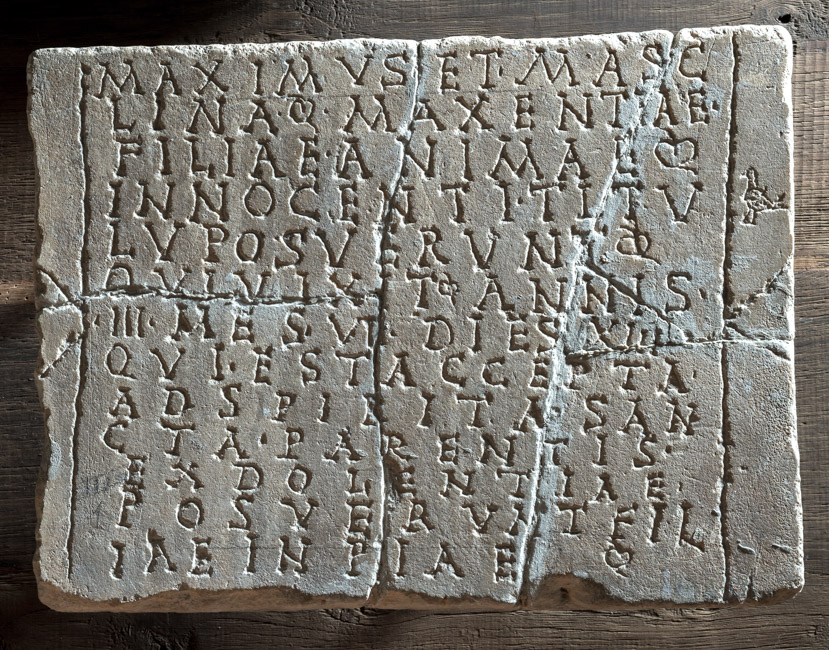 MAXIMVS ET·MASC
LINA ❦ MAXENTIAE
FILIAE·ANIMAE ❦
INNOCENTI·TITV
LV POSVERVNT ❦
QVI VIXT ❦ ANNIS·
·III· MESV· DIES XIIII
QVI·EST ACCEPTA·
AD SPIRITA SAN
CTA·PARENTIS·
EX DOLENTIAE·
POSVERVNT FIL
IAE IN PIAE ❦